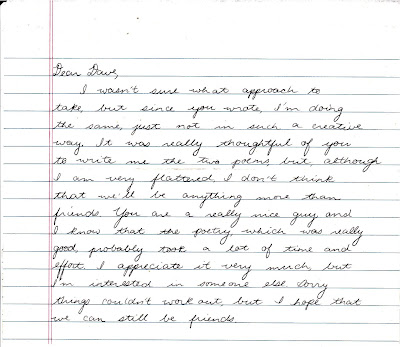 Dear Dave,
I wasn't sure what approach to
take, but since you wrote, I'm doing
the same, just not in such a creative
way. It was really thoughtful of you
to write me the two poems but, although
I am very flattered I don't think
that we'll be anything more than
friends. You are a really nice guy and
I know that the poetry which was really
good, probably took a lot of time and
effort. I appreciate it very much, but
I'm interested in someone else. Sorry
things couldn't work out, but I hope that
we can still be friends.